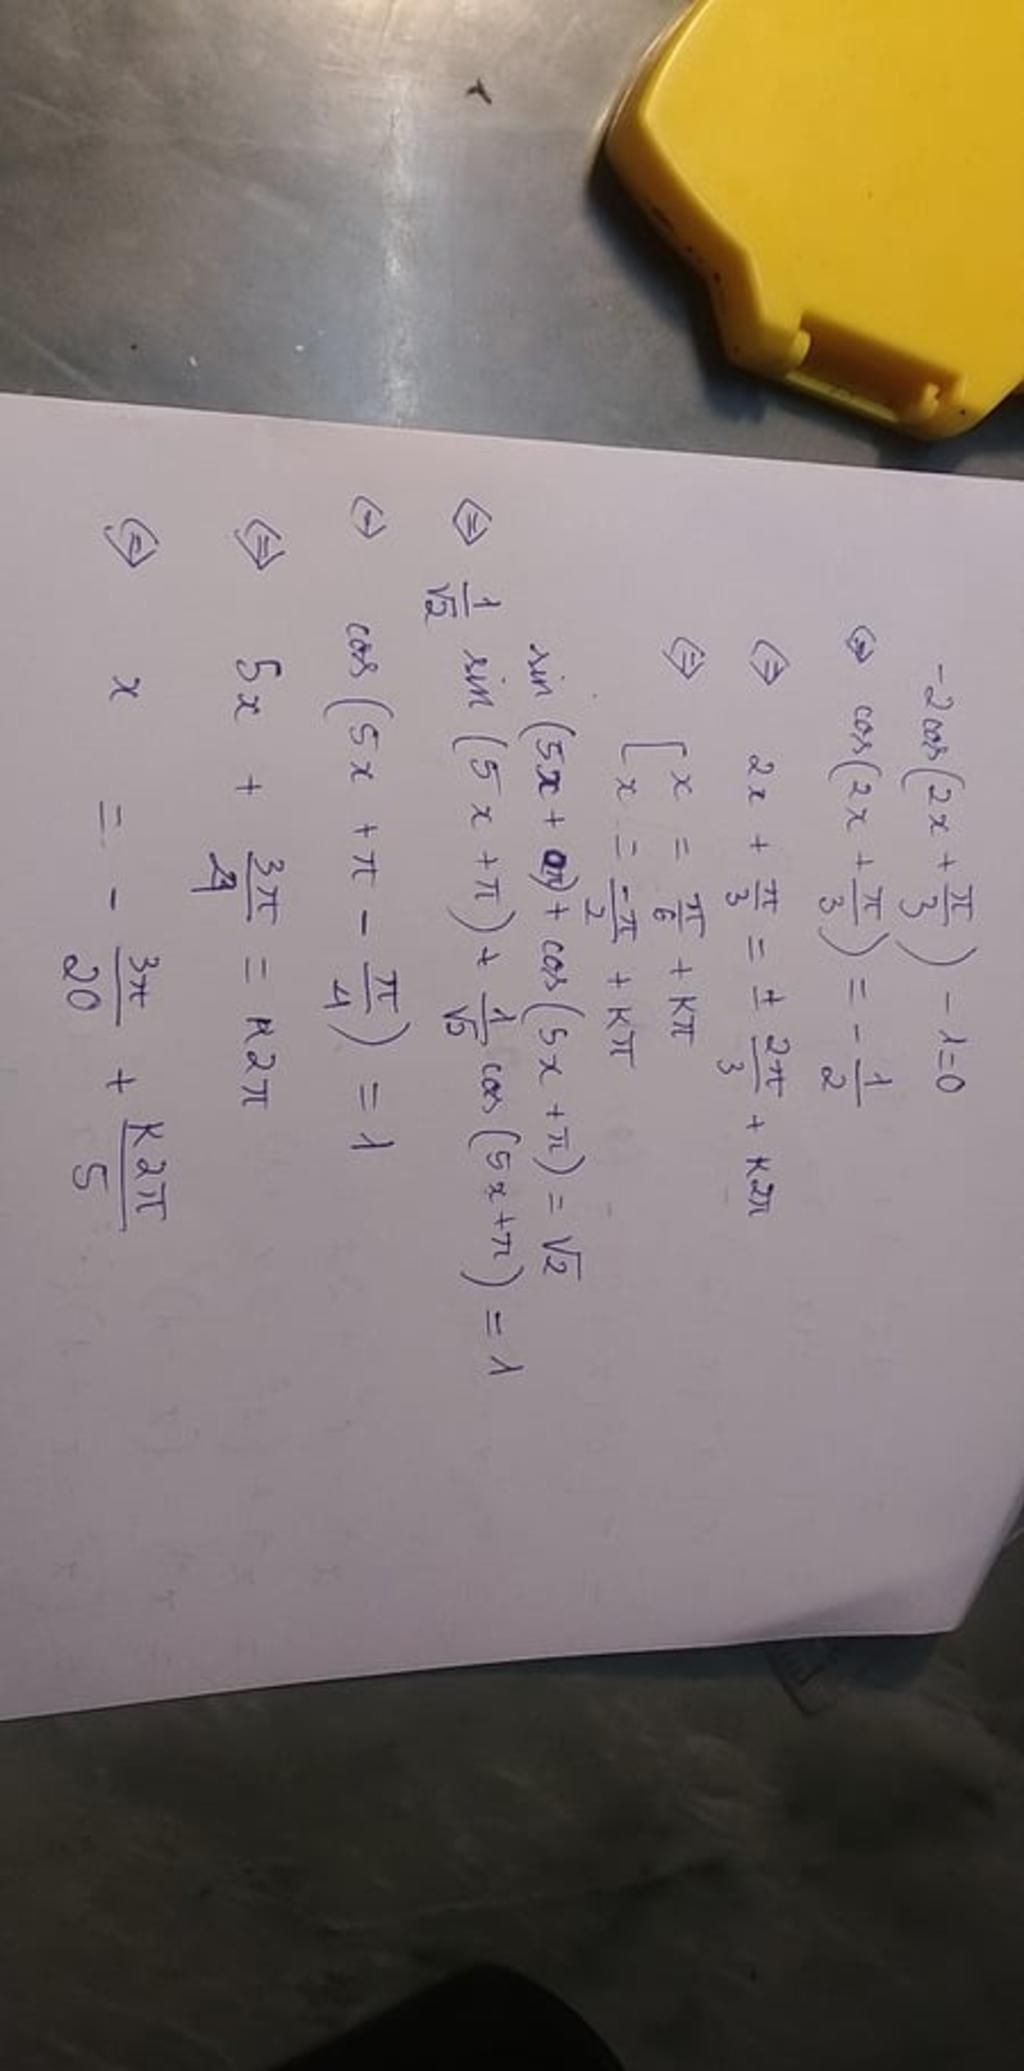 -2cos(2x + π/3) - 1=0
⇔ cos(2x + π/3) = - 1/2
⇔ 2x + π/3 = ± 2π/3 + k2π
⇔ [ x = π/6 + kπ
[ x = -π/2 + kπ
sin (5x + π) + cos(5x + π) = √2
⇔ 1/√2 sin (5x + π) + 1/√2 cos (5x + π) = 1
⇔ cos (5x + π - π/4) = 1
⇔ 5x + 3π/4 = k2π
⇔ x = - 3π/20 + k2π/5